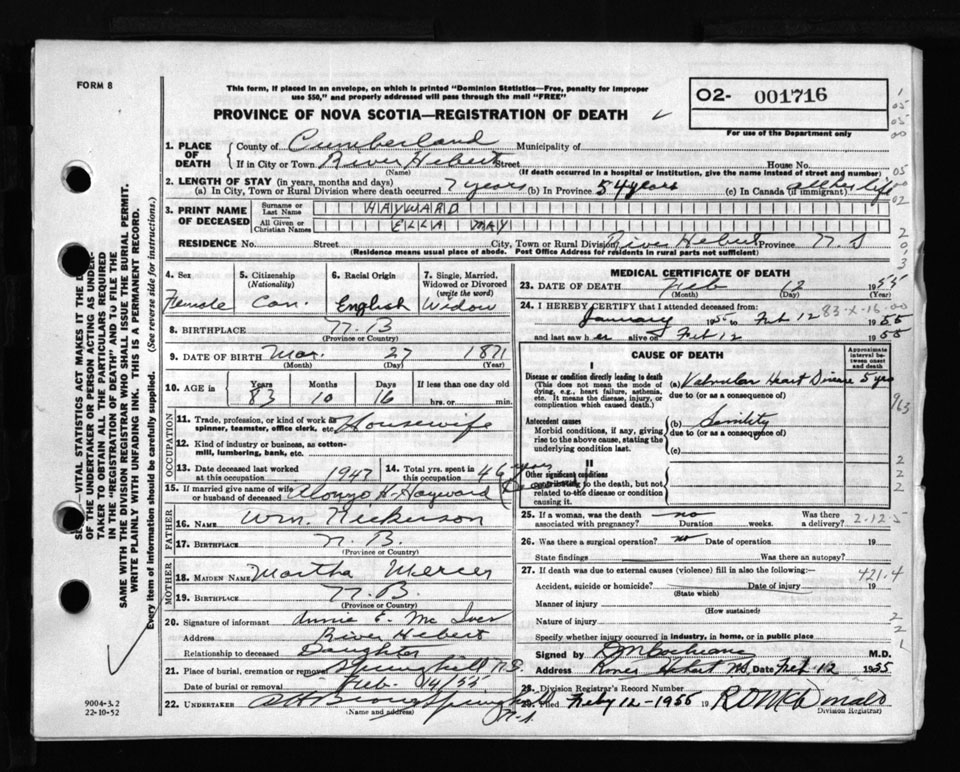 FORM 8
This form, if placed in an envelope, on which is printed "Dominion Statistics—Free, penalty for improper
use $50," and properly addressed will pass through the mail "FREE"
PROVINCE OF NOVA SCOTIA—REGISTRATION OF DEATH
O2- 001716
For use of the Department only
1. PLACE OF DEATH
County of Cumberland Municipality of
If in City or Town River Hebert Street House No.
(Name) (If death occurred in a hospital or institution, give the name instead of street and number)
2. LENGTH OF STAY (in years, months and days)
(a) In City, Town or Rural Division where death occurred 7 years (b) In Province 54 years (c) In Canada (if immigrant) all her life
3. PRINT NAME OF DECEASED
Surname or Last Name HAYWARD
All Given or Christian Names ELLA MAY
RESIDENCE No. Street City, Town or Rural Division River Hebert Province N.S
(Residence means usual place of abode. Post Office Address for residents in rural parts not sufficient)
4. Sex Female
5. Citizenship (Nationality) Can.
6. Racial Origin English
7. Single, Married, Widowed or Divorced (write the word) Widow
8. BIRTHPLACE N.B
(Province or Country)
9. DATE OF BIRTH Mar. 27 1871
(Month) (Day) (Year)
10. AGE in Years 83 Months 10 Days 16 If less than one day old hrs. or min.
OCCUPATION
11. Trade, profession, or kind of work as spinner, teamster, office clerk, etc. Housewife
12. Kind of industry or business, as cotton-mill, lumbering, bank, etc.
13. Date deceased last worked at this occupation 1947
14. Total yrs. spent in this occupation 46 years
15. If married give name of wife or husband of deceased Alonzo H. Hayward
FATHER
16. NAME Wm. Nickerson
17. BIRTHPLACE N.B.
(Province or Country)
MOTHER
18. MAIDEN NAME Martha Mercer
19. BIRTHPLACE N.B.
(Province or Country)
20. Signature of informant Annie E. Mc Iver
Address River Hebert
Relationship to deceased Daughter
21. Place of burial, cremation or removal Springhill N.S.
Date of burial or removal Feb. 14/55
22. UNDERTAKER Springhill
(Name and Address) N.S.
MEDICAL CERTIFICATE OF DEATH
23. DATE OF DEATH Feb 12 1955
(Month) (Day)
24. I HEREBY CERTIFY that I attended deceased from:
January 1955 to Feb 12 1955
83-X-16-00
and last saw her alive on Feb 12 1955
CAUSE OF DEATH
Approximate interval between onset and death
I
Disease or condition directly leading to death
(This does not mean the mode of dying, e.g., heart failure, asthenia, etc. It means the disease, injury, or complication which caused death.)
(a) Valvular Heart Disease 5 yrs
due to (or as a consequence of)
Antecedent causes
Morbid conditions, if any, giving rise to the above cause, stating the underlying condition last.
(b) Senility
due to (or as a consequence of)
(c)
II
Other significant conditions contributing to the death, but not related to the disease or condition causing it.
25. If a woman, was the death associated with pregnancy? no Duration weeks. Was there a delivery?
2-12-5
26. Was there a surgical operation? no Date of operation 19
State findings Was there an autopsy?
27. If death was due to external causes (violence) fill in also the following:—
421.4
Accident, suicide or homicide? Date of injury 19
(State which)
Manner of injury
(How sustained)
Nature of injury
Specify whether injury occurred in industry, in home, or in public place
Signed by DM Cochrane M.D.
Address River Hebert NS Date Feb-12 1955
28. Division Registrar's Record Number
29. Filed Feby 12-1955 19 R D McDonald
Division Registrar
SEC. —VITAL STATISTICS ACT MAKES IT THE DUTY
OF THE UNDERTAKER OR PERSON ACTING AS UNDER-
TAKER TO OBTAIN ALL THE PARTICULARS REQUIRED
IN THE "REGISTRATION OF DEATH" AND TO FILE THE
SAME WITH THE DIVISION REGISTRAR WHO SHALL ISSUE THE BURIAL PERMIT.
WRITE PLAINLY WITH UNFADING INK. THIS IS A PERMANENT RECORD.
Every item of information should be carefully supplied. (See reverse side for instructions.)
9004-3.2
22-10-52